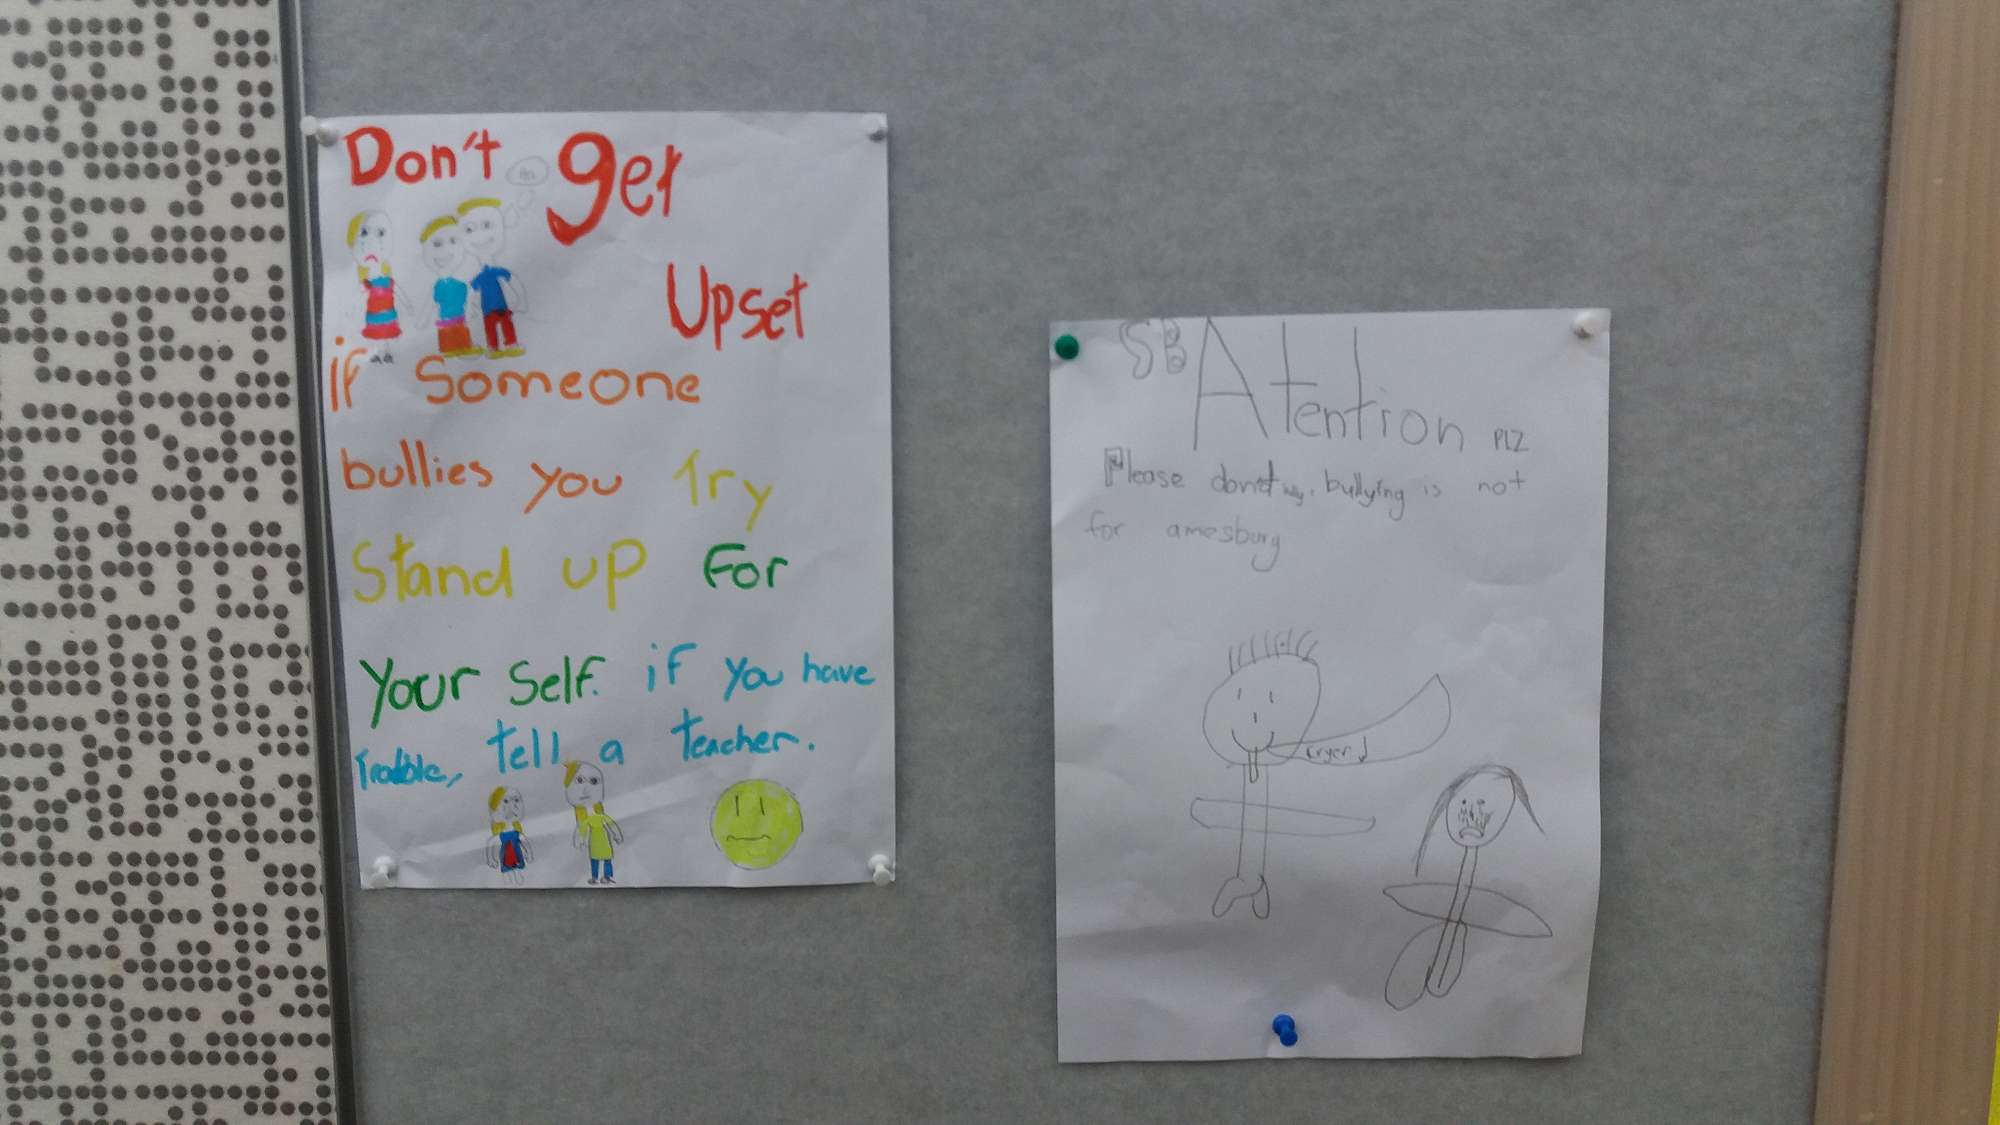 Don't get
Ha
Upset
if Someone
bullies you Try
Stand up For
Your Self. if you have
Trouble, tell a teacher.
5B Atention PLZ
Please don't bullying is not
for amesburg
cryer!